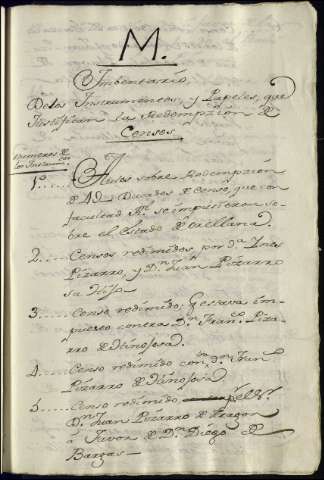 M.
Imbentario,
De los Instrumentos, y Papeles, que
Justifican la Redempzion de
Censos.
Numeros de
los Instrum.
1º. Autos sobre Redempzion
de Ducados de Censo, que con
facultad Rl. se impusieron so-
bre el Estado de orellana.
2. Censos redimidos, por dª. Ines
Pizarro, y Dn. Juan Pizarro
su Hijo
3. Censo redimido, q estava im-
puesto contra Dn. Franco. Piza-
rro de Hinojosa.
4. Censo redimido con Juan
Pizarro de Hinojosa
5. Censo redimido
Dn. Juan Pizarro de Aragon
á favor de Dn. Diego de
Bargas